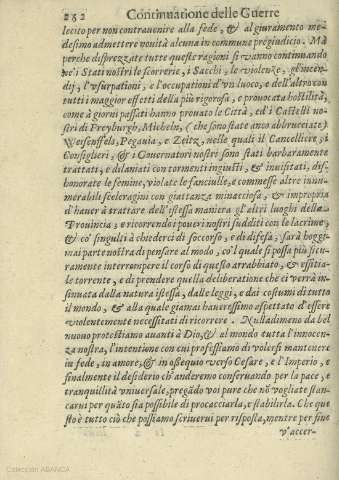 252 Continuatione delle Guerre
lecito per non contrauenire alla fede, & al giuramento me-
desimo admettere nouità alcuna in commune pregiudicio. Mà
perche disprezzate tutte queste ragioni si vanno continuando
ne'i Stati nostri le scorrerie, i Sacchi, le violenze, gl'incen-
dij, l'vsurpationi, e l'occupationi d'vn luoco, e dell'altro con
tutti i maggior effetti della più rigorosa, e prouocata hostilità,
come à giorni passati hanno prouato le Città, ed i Castelli no-
stri di Freyburgh, Micheln, (che sono state anco abbrucciate)
Weisenffels, Pegauia, e Zeitz, nelle quali il Cancelliere, i
Consiglieri, & i Gouernatori nostri sono stati barbaramente
trattati, e dilaniati con tormenti ingiusti, & inusitati, dis-
honorate le femine, violate le fanciulle, e commesse altre innu-
merabili sceleragini con giattanza minacciosa, & impropria
d'hauer à trattare dell'istessa maniera gl'altri luoghi della
Prouincia, e ricorrendo i poueri nostri sudditi con le lacrime,
& co' singulti à chiederci di soccorso, e di difesa, sarà hoggi-
mai parte nostra di pensare al modo, co'l quale si possa più sicu-
ramente interrompere il corso di questo arrabbiato, & essitia-
le torrente, e di prendere quella deliberatione che ci verrà in-
sinuata dalla natura istessa, dalle leggi, e dai costumi di tutto
il mondo, & alla quale giamai haueressimo aspettato d'essere
violentemente necessitati di ricorrere. Nulladimeno da bel
nuouo protestiamo auanti à Dio, & al mondo tutta l'innocen-
za nostra, l'intentione con cui professiamo di volersi mantenere
in fede, in amore, & in ossequio verso Cesare, e l'Imperio, e
finalmente il desiderio ch'anderemo conseruando per la pace, e
tranquillità vniuersale, pregãdo voi pure che nõ vogliate stan-
carui per quãto sia possibile di procacciarla, e stabilirla. Che que
sto è tutto ciò che possiamo scriuerui per risposta, mentre per fine
v'accer-
Colección ABANCA